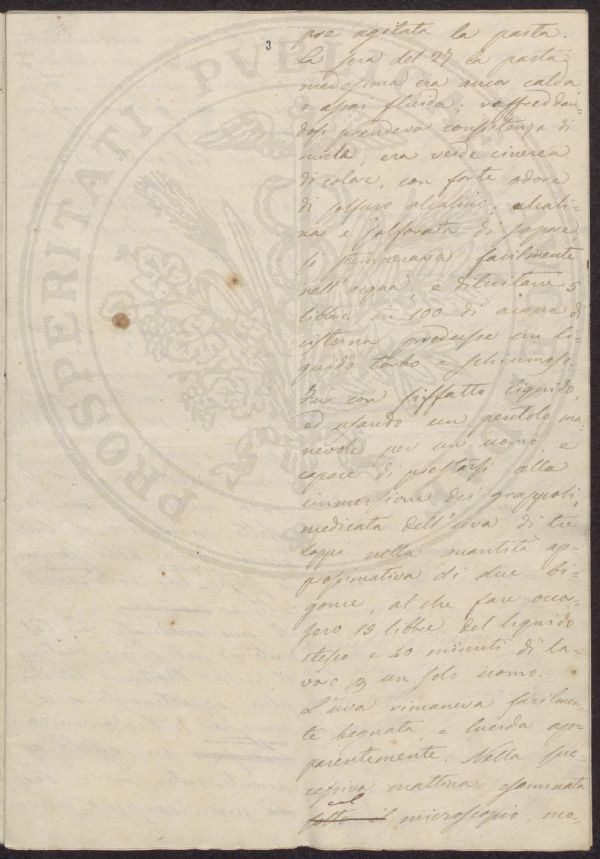 3
pre agitata la pasta.
La sera del 27 la pasta
medesima era ancor calda
e assai fluida; raffreddan-
dosi prendeva consistenza di
miele; era verde cinerea
di colore, con forte odore
di solfuro alcalino; alcali-
na e solforata di sapore
si stemperava facilmente
nell'acqua, e diluitane 5
libbre in 100 di acqua di
cisterna produsse un li-
quido torbo e schiumoso.
Fu con siffatto liquido,
ed usando un pentolo ma-
nevole per un uomo e
capace di prestarsi alla
immersione dei grappoli,
medicata dell'uva di tre
loppi nella quantità ap-
prossimativa di due bi-
gonce, al che fare occor-
sero 15 libbre del liquido
stesso e 40 minuti di la-
voro p un solo uomo.
L'uva rimaneva facilmen-
te bagnata, e lucida ap-
parentemente. Nella suc-
cessiva mattina esaminata
al
sotto il microscopio, mo-
PROSPERITATI PVBLICAE